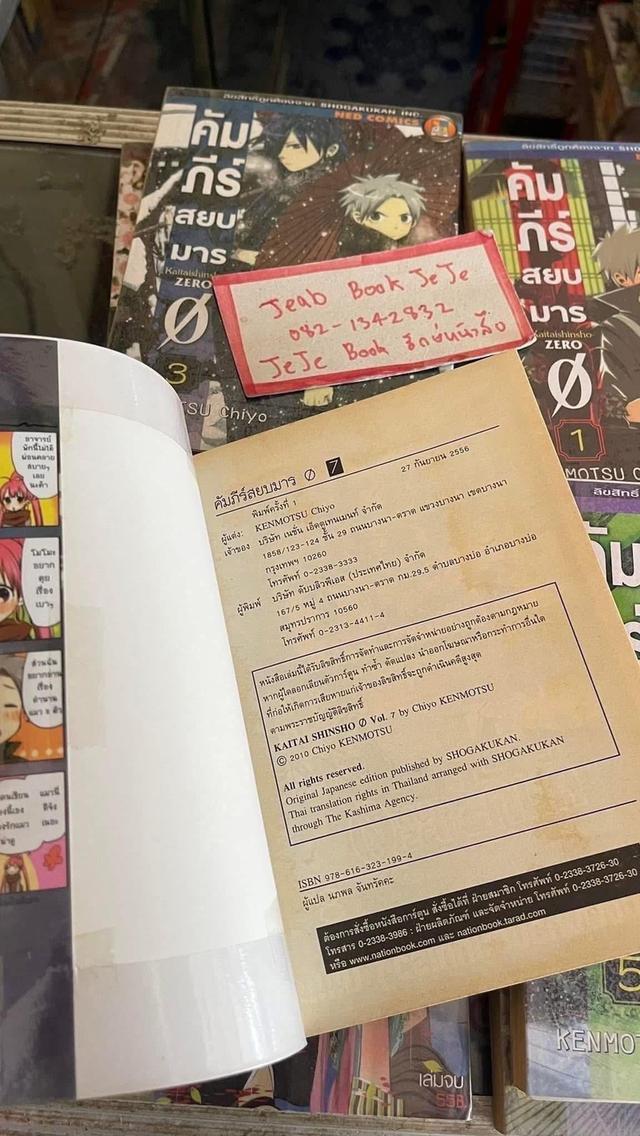 ลิขสิทธิ์ถูกต้องจาก SHOGAKUKAN INC.
NED COMICS
คัม
ภีร์
สยบ
มาร
Kaitaishinsho
ZERO
Ø
3
TSU Chiyo
ลิขสิทธิ์ถูกต้องจาก SHOG
คัม
ภีร์
สยบ
มาร
Kaitaishinsho
ZERO
Ø
1
MOTSU C
ลิขสิทธิ์
Jeab Book JeJe
082-1342832
JeJe Book รักษ์หนังสือ
อาจารย์
พักนี้ไม่ได้
ผ่อนคลาย
สบายๆ
เลย
นะค้า
โมโมะ
อยาก
คุย
เรื่อง
เบาๆ
ส่วนฉัน
อยากอ่าน
เรื่อง
ตำนาน
คัมภีร์สยบมาร Ø 7
27 กันยายน 2556
พิมพ์ครั้งที่ 1
ผู้แต่ง: KENMOTSU Chiyo
เจ้าของ บริษัท เนชั่น เอ็ดดูเทนเมนท์ จำกัด
1858/123-124 ชั้น 29 ถนนบางนา-ตราด แขวงบางนา เขตบางนา
กรุงเทพฯ 10260
โทรศัพท์ 0-2338-3333
ผู้พิมพ์ บริษัท ดับบลิวพีเอส (ประเทศไทย) จำกัด
167/5 หมู่ 4 ถนนบางนา-ตราด กม.29.5 ตำบลบางบ่อ อำเภอบางบ่อ
สมุทรปราการ 10560
โทรศัพท์ 0-2313-4411-4
หนังสือเล่มนี้ได้รับลิขสิทธิ์การจัดทำและการจัดจำหน่ายอย่างถูกต้องตามกฎหมาย
หากผู้ใดลอกเลียนตัวการ์ตูน ทำซ้ำ ดัดแปลง นำออกโฆษณาหรือกระทำการอื่นใด
ที่ก่อให้เกิดการเสียหายแก่เจ้าของลิขสิทธิ์จะถูกดำเนินคดีสูงสุด
ตามพระราชบัญญัติลิขสิทธิ์
KAITAI SHINSHO Ø Vol. 7 by Chiyo KENMOTSU
© 2010 Chiyo KENMOTSU
All rights reserved.
Original Japanese edition published by SHOGAKUKAN.
Thai translation rights in Thailand arranged with SHOGAKUKAN
through The Kashima Agency.
ISBN 978-616-323-199-4
ผู้แปล นภพล จันทรัคคะ
ต้องการสั่งซื้อหนังสือการ์ตูน สั่งซื้อได้ที่ ฝ่ายสมาชิก โทรศัพท์ 0-2338-3726-30
โทรสาร 0-2338-3986 : ฝ่ายผลิตภัณฑ์ และจัดจำหน่าย โทรศัพท์ 0-2338-3726-30
หรือ www.nationbook.com และ nationbook.tarad.com
5
KENMOT
เล่มจบ
55B